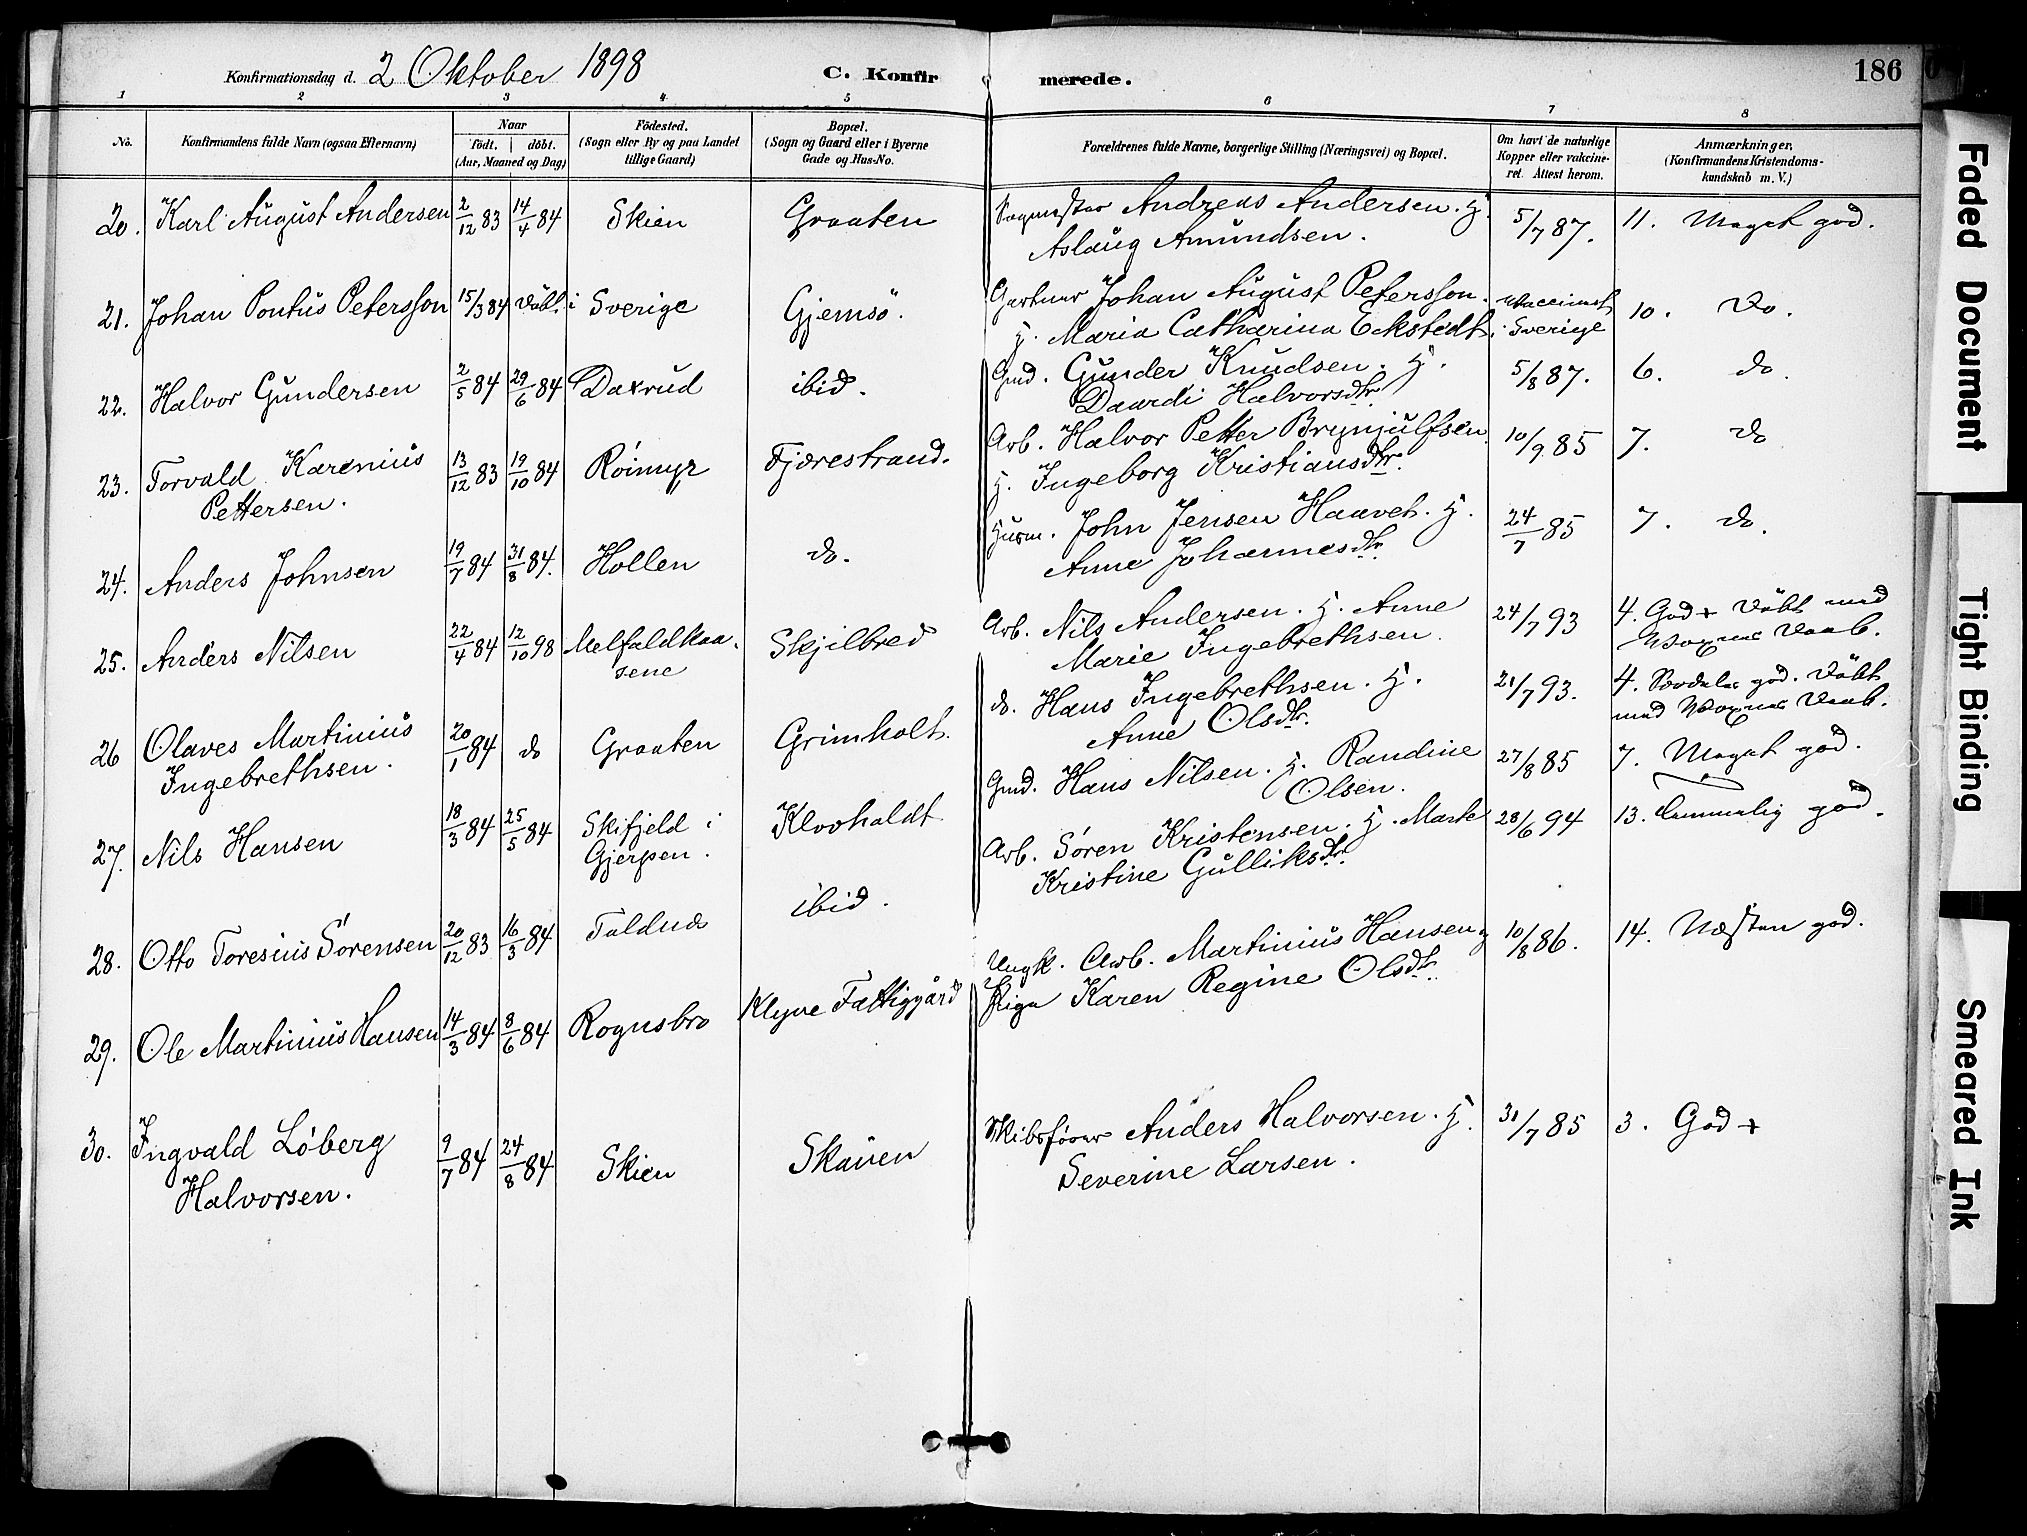 Konfirmationsdag d. 2 Oktober 1898 C. Konfirmerede. 186
1 2 3 4 5 6 7 8
No. Konfirmandens fulde Navn (ogsaa Efternavn) Naar födt. döbt. (Aar, Maaned og Dag) Födested. (Sogn eller By og paa Landet tillige Gaard) Bopæl. (Sogn og Gaard eller i Byerne Gade og Hus-No. Forældrenes fulde Navne, borgerlige Stilling (Næringsvei) og Bopæl. Om havt de naturlige Kopper eller vakcineret. Attest herom. Anmærkninger. (Konfirmandens Kristendomskundskab m. V.)
20. Karl August Andersen 2/12 83 14/4 84 Skien Graaten Andreas Andersen. H. 5/7 87. 11. Meget god.
Aslaug Amundsen.
21. Johan Pontus Petersson 15/3 84 Döbt i Sverige Gjemsö. Gartner Johan August Petersson. Vaccineret 10. Do.
H. Maria Catharina Eckstedt. i Sverige
22. Halvor Gundersen 2/5 84 29/6 84 Daxrud ibid. Gmd. Gunder Knudsen. H. 5/8 87. 6. do
Daardi Halvorsdtr.
23. Torvald Karenius 13/12 83 19/10 84 Röimyr Fjærestrand. Arb. Halvor Petter Brynjulfsen 10/9 85 7. do
Pettersen. H. Ingeborg Kristiansdtr.
24. Anders Johnsen 19/7 84 31/8 84. Hollen do. Husm. John Jensen Haavet. H. 24/7 85 7. do.
Anne Johannesdtr
25. Anders Nilsen 22/4 84 12/10 98 Melfaldkaa- Skjilbred Arb. Nils Andersen. H. Anne 24/7 93 4. God + Döbt med
sene Marie Ingebrethsen. Voxnes Daab.
26 Olaves Martinius 20/1 84 do Graaten Grimholt. do. Hans Ingebrethsen. H. 21/7 93. 4. Særdeles god. Döbt
Ingebrethsen. Anne Olsdtr. med Voxnes Daab.
27. Nils Hansen 18/3 84 25/5 84 Skifjeld i Klovholdt Gmd. Hans Nilsen. H. Randine 27/8 85 7. Meget god.
Gjerpen. Olsen.
28. Otto Toresius Sörensen 20/12 83 16/3 84 Foldnæs ibid. Arb. Sören Kristensen. H. Marte 28/6 94 13. Temmelig god.
Kristine Gulliksdtr.
29. Ole Martinius Hansen 14/3 84 8/6 84 Rognsbro Klyve Fattiggård Ungk. Arb. Martinius Hansen og 10/8 86. 14. Næsten god.
Pige Karen Regine Olsdtr.
30. Ingvald Löberg 9/7 84 24/8 84 Skien Skauen Skibsförer Anders Halvorsen. H. 31/7 85 3. God +
Halvorsen. Severine Larsen.
Faded Document
Tight Binding
Smeared Ink